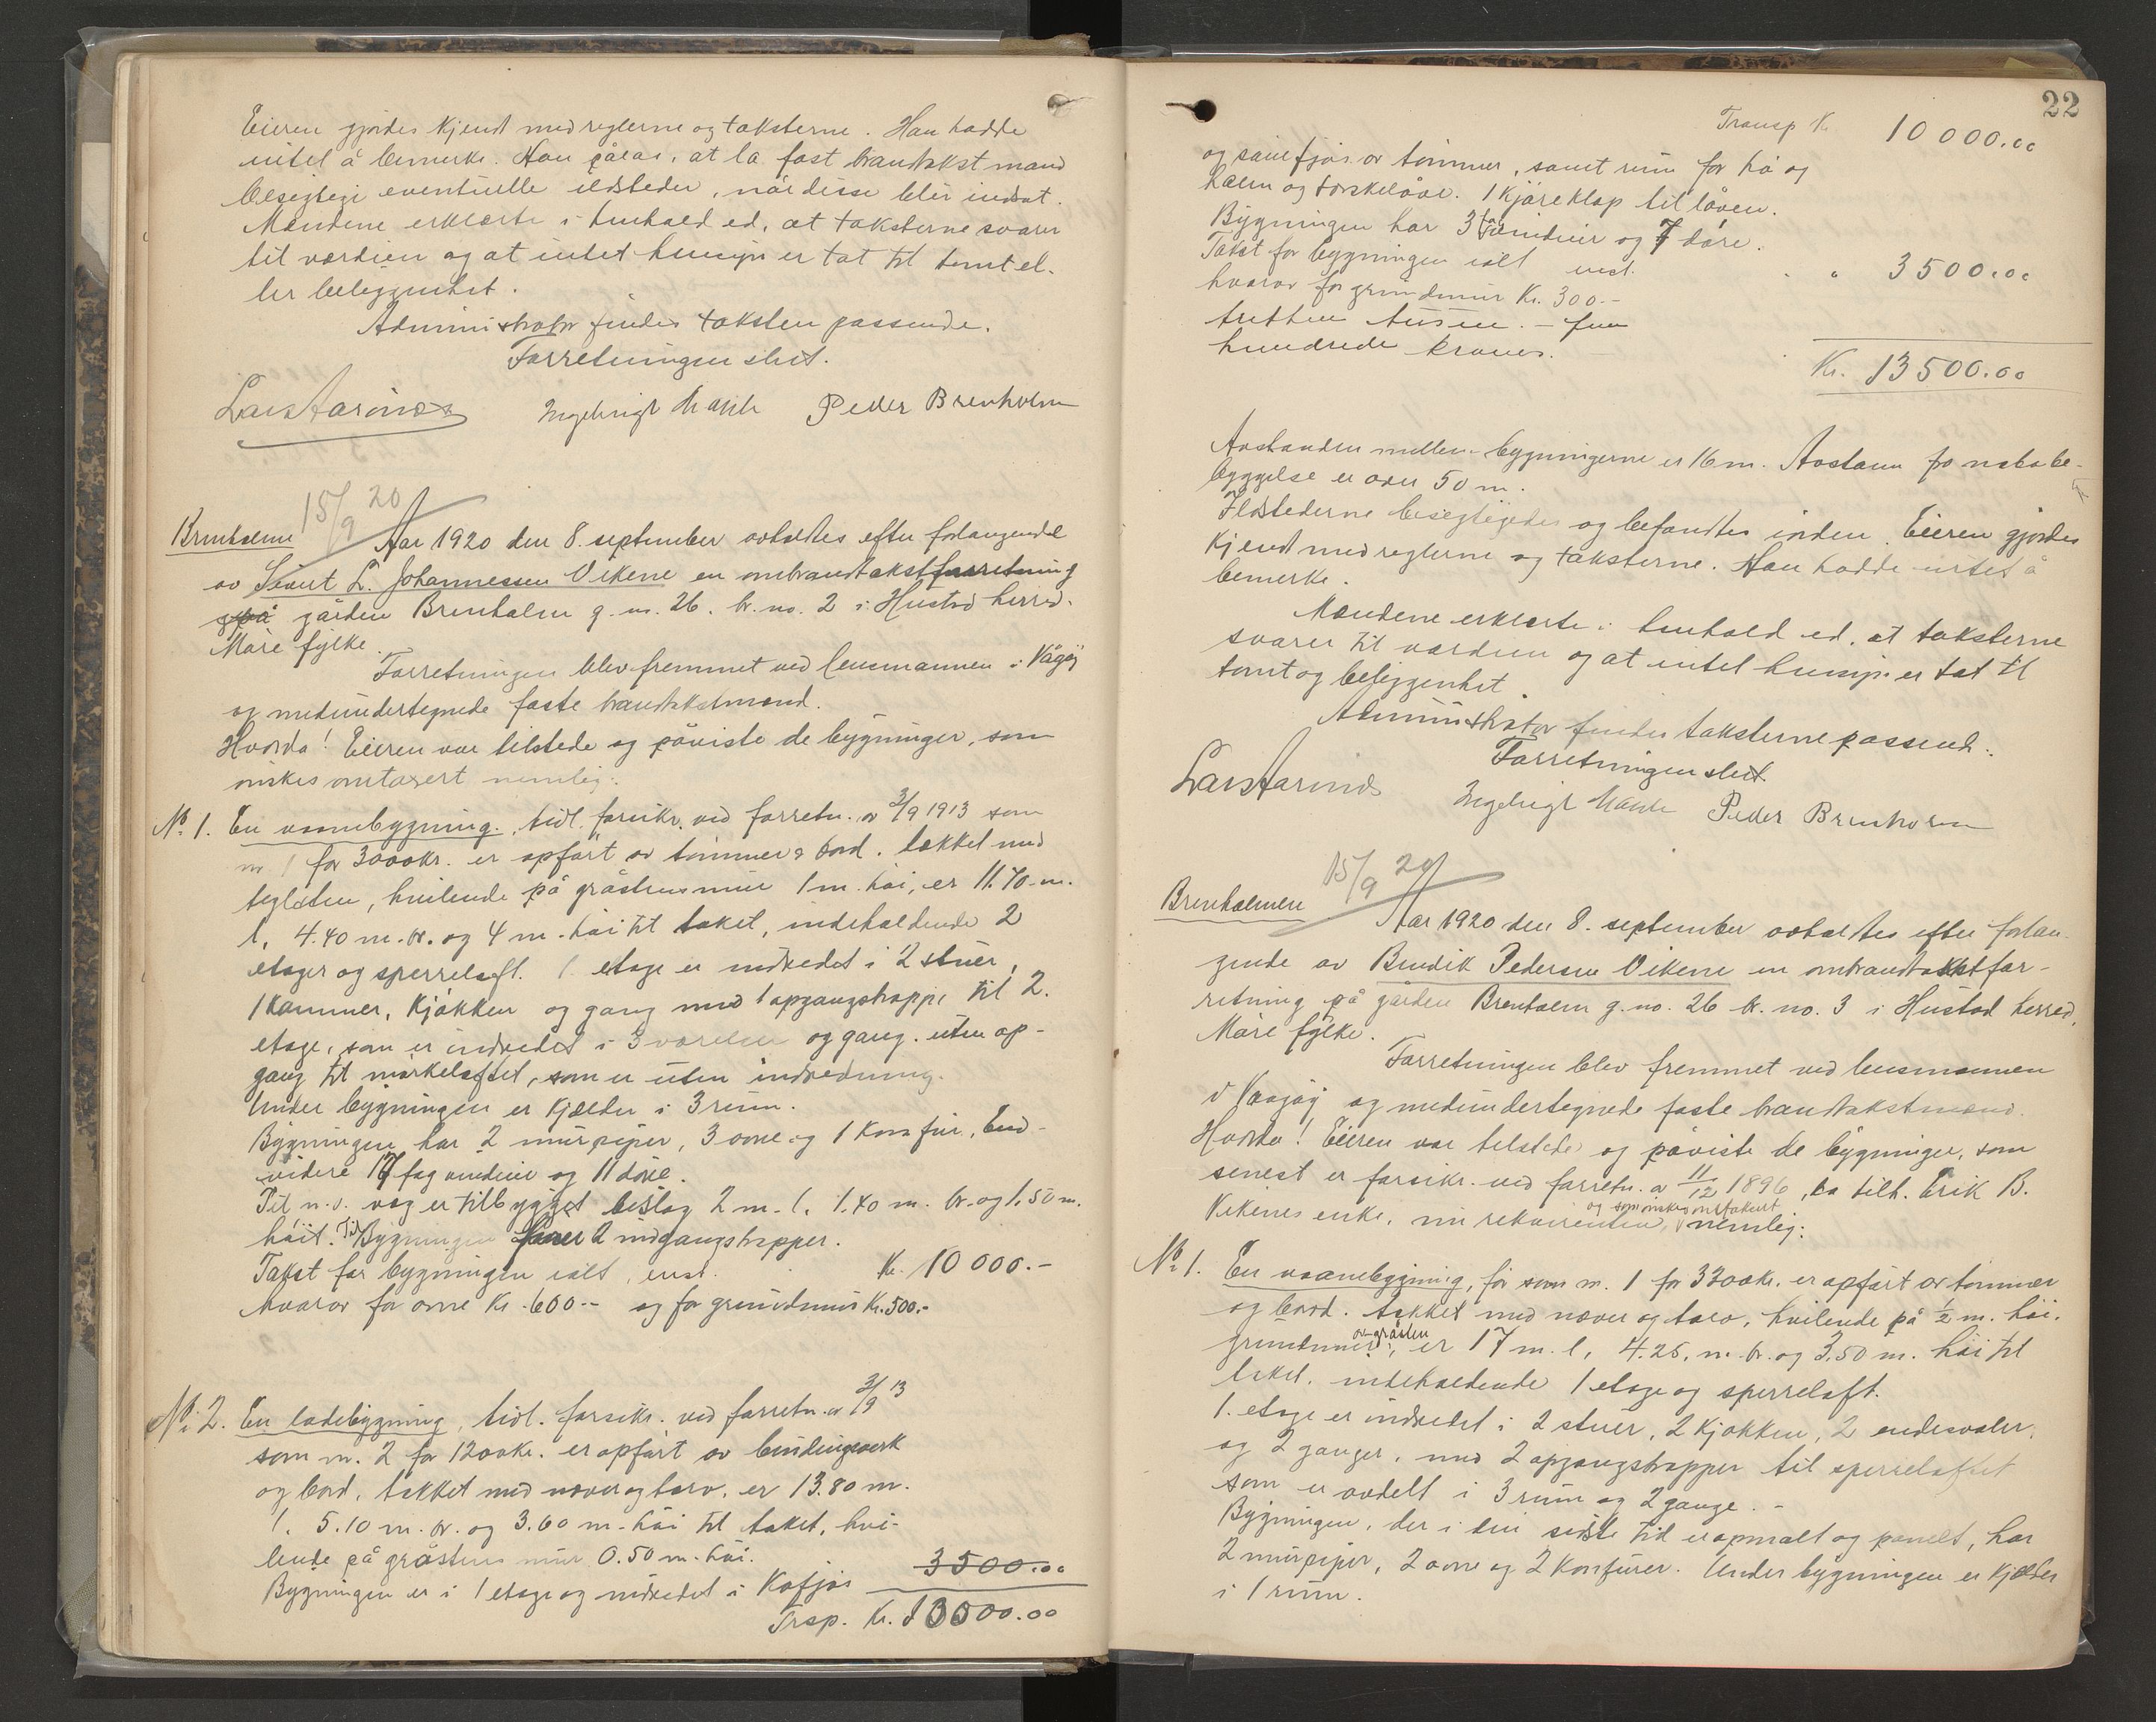 Eieren gjordes kjendt med reglerne og taksterne. Han hadde
intet å bemerke. Han pålas, at la fast brandtakstmand
besigtige eventuelle ildsteder, når disse blir indsat.
Mændene erklærte i henhold ed, at taksterne svarer
til værdien og at intet hensyn er tat til tomt el-
ler beliggenhet.
Administrator findes taksten passende.
Forretningen slut.
Lars Aarønes Ingebrigt Peder Brenholm
15/9 20
Brenholmen Aar 1920 den 8. september avholdtes efter forlangende
av Sivert L. Johannessen Vikene en ombrandtakstforretning
på gården Brenholm g. no. 26. br. no. 2 i Hustad herred.
Möre fylke.
Forretningen blev fremmet ved lensmannen i Vågøy
og medundertegnede faste brandtakstmænd.
Hvorda! Eieren var tilstede og påviste de bygninger, som
önskes omtaxert nemlig:
No. 1. En vaanebygning, tidl. forsikr. ved forretn. av 3/9 1913 som
nr. 1 for 3000kr. er opfört av tömmer & bord. tækket med
teglsten, hvilende på gråstensmur 1 m. höi, er 11.70 m.
l, 4.40 m. br. og 4 m. höi til taket, indeholdende 2
etager og sperreloft. 1. etage er indredet i 2 stuer,
1 kammer, kjökken og gang med 1 opgangstrappe til 2.
etage, som er indredet i 3 værelser og gang. uten op-
gang til mörkeloftet, som er uten indredning.
Under bygningen er kjælder i 3 rum.
Bygningen har 2 murpiper, 3 ovne og 1 komfur. End-
videre 17 fag vinduer og 11 döre.
Til n. v. væg er tilbygget bislag 2 m. l. 1.40 m. br. og 1.50 m.
höit. Til Bygningen förer 2 indgangstrapper.
Takst for bygningen ialt, enst. Kr. 10 000.-
hvorav for ovne Kr. 600.- og for grundmur Kr. 500.-
No. 2. En ladebygning, tidl. forsikr. ved forretn. av 3/9 13
som nr. 2 for 1200kr. er opfört av bindingsverk
og bord, tækket med næver og torv, er 13.80 m.
l. 5.10 m. br. og 3.60 m. höi til taket, hvi-
lende på gråstens mur 0.50 m. höi.
Bygningen er i 1 etage og indredet i Kofjös 3500.00
Trsp. Kr. 13500.00
22
Transp Kr. 10 000.00
og sauefjös av tömmer, samt rum for hö og
halm og torskelåve. 1 kjöreklop til låven.
Bygningen har 3 fag vinduer og 7 döre.
Takst for bygningen ialt enst. " 3500.00
hvorav for grundmur Kr. 300.-
tretten tusen - fem
hundrede kroner.
Kr. 13500.00
Avstanden mellem bygningerne er 16 m. Avstann fra nabobe-
byggelse er over 50 m.
Ildstederne besigtigedes og befandtes iorden. Eieren gjordes
kjendt med reglerne og taksterne. Han hadde intet å
bemerke.
Mændene erklærte i henhold ed. at taksterne
svarer til værdien og at intet hensyn er tat til
tomt og beliggenhet.
Administrator findes taksterne passende.
Forretningen slut.
Lars Aarønes Ingebrigt Peder Brenholm
15/9 20
Brenholmen Aar 1920 den 8. september avholdtes efter forlan-
gende av Bendik Pedersen Vikene en ombrandtakstfor-
retning på gården Brenholm g. no. 26 br. no. 3 i Hustad herred,
Möre fylke.
Forretningen blev fremmet ved lensmannen
i Vaagöy og medundertegnede faste brandtakstmænd.
Hvorda! Eieren var tilstede og påviste de bygninger, som
senest er forsikr. ved forretn. av 11/12 1896, da tilh. Erik B.
Vikenes enke, nu rekvirenten, og som önskes omtaksert nemlig:
No. 1. En vaanebygning, för som nr. 1 for 3300kr. er opfört av tömmer
og bord. tækket med næver og torv, hvilende på 1/2 m. höi.
grundmur av gråsten, er 17 m. l, 4.25. m. br. og 3.50 m. höi til
taket. indeholdende 1 etage og sperreloft.
1. etage er indredet i 2 stuer, 2 kjökken, 2 endesvaler.
og 2 ganger, med 2 opgangstrapper til sperreloftet
som er avdelt i 3 rum og 2 gange. -
Bygningen, der i den sidste tid er opmalt og panelt, har
2 murpiper, 2 ovne og 2 komfurer. Under bygningen er kjælder
i 1 rum.